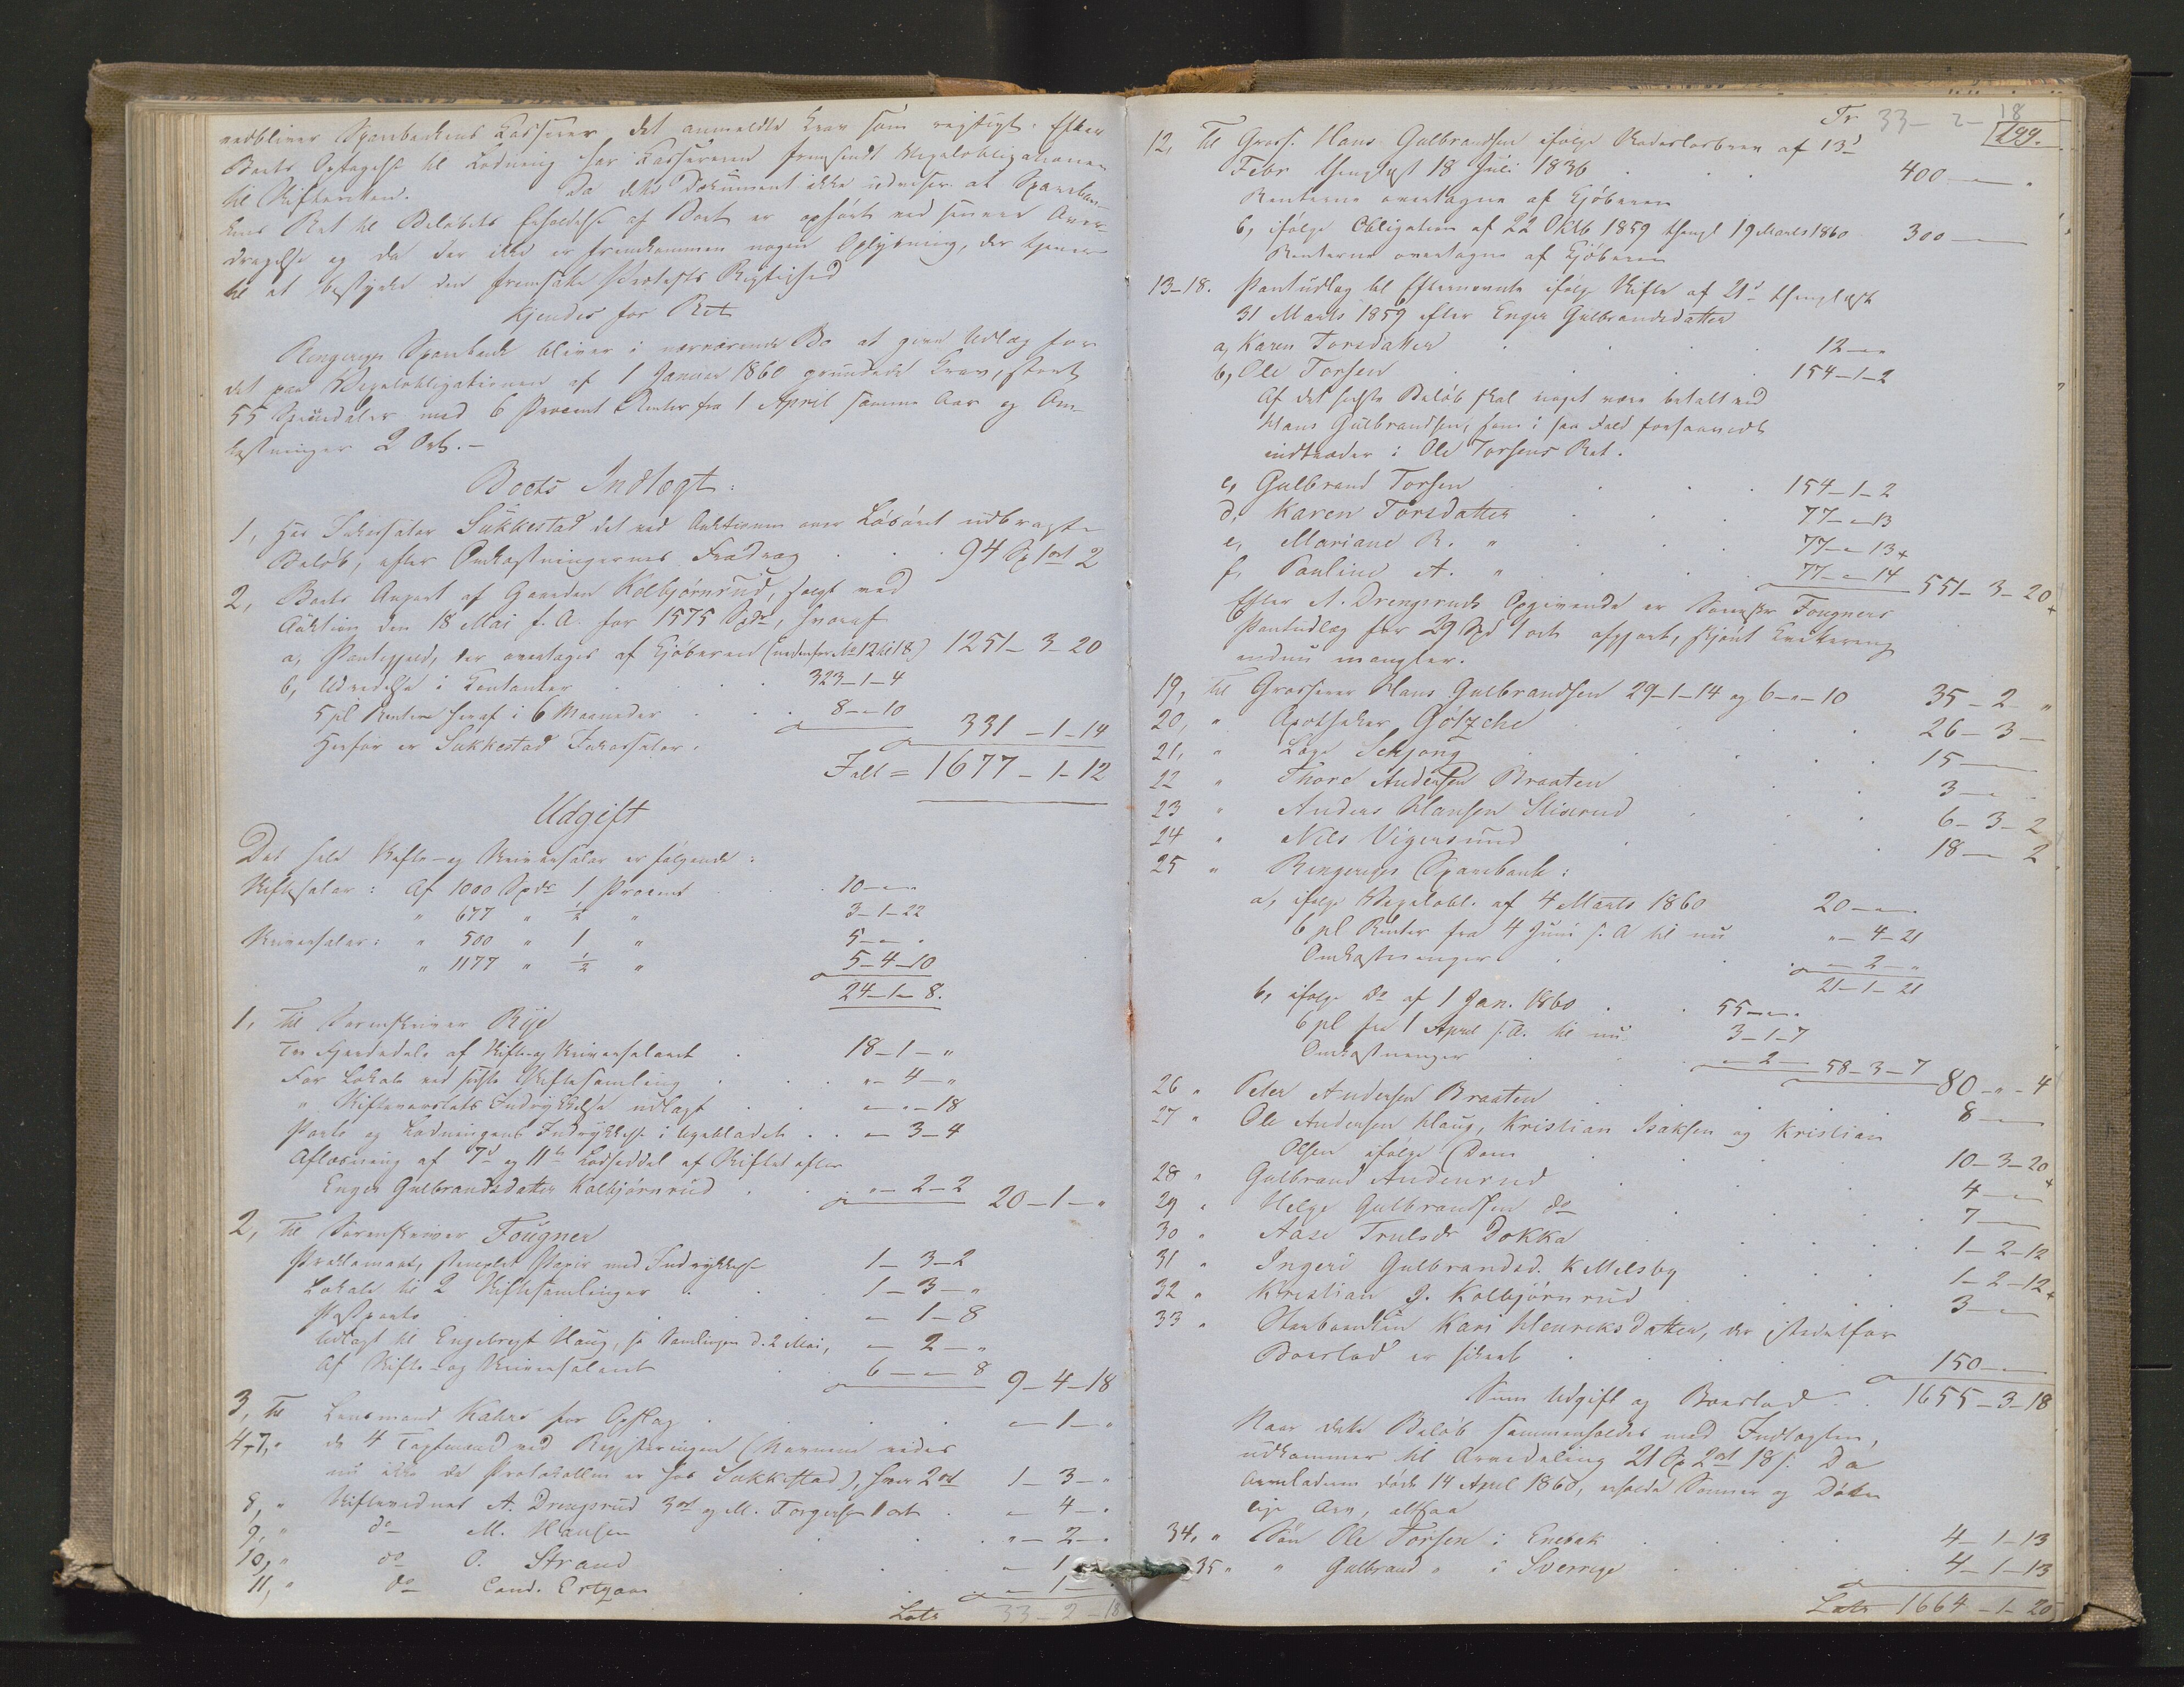 vedbliver Sparebankens Kasserer det anmeldte Krav som rigtigt. Efter
Boets Optagelse til Kjendelse har Kassereren fremsendt Vexelobligationen
til Skifteretten. Da dette Dokument ikke udviser at Sparebankens
Ret til Beløbets Erholdelse af Boet er ophørt ved senere Over-
dragelse og da der ikke er fremkommen nogen Oplysning, der tjener
til at bestyrke den fremsatte Protests Rigtighed
Kjendes for Ret
Ringeriges Sparebank bliver i nærværende Bo at give Udlæg for
det paa Vexelobligationen af 1 Januar 1860 grundede Krav, stort
55 Speciedaler med 6 Procent Renter fra 1 April samme Aar og Om-
kostninger 2 Ort.-
Boets Indtægt:
1, Hos Inkassator Sukkestad det ved Auktionen over Løsøret udbragte
Beløb, efter Omkostningernes Fradrag 94 Sp 1 ort 2
2, Boets Anpart af Gaarden Kolbjørnrud, solgt ved
Auktion den 18 Mai f. A. for 1575 Spdr, hvoraf
a, Pantegjeld, der overtages af Kjøberen (nedenfor No 12 til 18) 1251-3-20
b, Udredelse i Kontanter 323-1-4
5 pCt Renter heraf i 6 Maaneder 8-"-10
331-1-14
Herfor er Sukkestad Inkassator.
Ialt = 1677-1-12
Udgift
Det hele Skifte- og Skriversalær er følgende:
Skiftesalær: Af 1000 Spdr 1 Procent 10-"-"
" 677 " ½ " 3-1-22
Skriversalær: " 500 " 1 " 5-"-"
" 1177 " ½ " 5-4-10
24-1-8.
1, Til Sorenskriver Rije
Tre Fjerdedele af Skifte- og Skriversalæret 18-1-"
For Lokale ved sidste Skiftesamling "-4-"
" Skiftevarslets Indrykkelse udlagt "-"-18
Porto og Indrykkelse i Ugebladet "-3-4
Afløsning af 7de og 11te Lodseddel af Skiftet efter
Enger Gulbrandsdatter Kolbjørnrud "-2-2 20-1-"
2, Til Sorenskriver Fougner
Proklamaet, stemplet Papir med Indrykkelse 1-3-2
Lokale til 2 Skiftesamlinger 1-3-"
Postporto -1-8
Udlagt til Engebregt Haug, for Samlingen d. 2 Mai, -2-"
Af Skifte- og Skriversalæret 6-"-8 9-4-18
3, Til Lensmand Kahrs for Opslag -1-"
4-7, " de 4 Taxtmænd ved Registeringen (Navnene vides
nu ikke da Protokollen er hos Sukkestad), hver 2 ort 1-3-"
8, " Skiftevidnet A. Drengsrud 3 ort og M. Torgersen 1 ort -4-"
9, " do M. Hansen "-2-"
10, " do O. Strand -1
11, " do Cand. Ertzaas -1-
Lats 33-2-18
Tr 33-2-18
199.
12, Til Gross. Hans Gulbrandsen ifølge Skadesløsbrev af 13de
Febr thinglæst 18 Juli 1836 400-"-"
Renterne overtagne af Kjøberen
b, ifølge Obligation af 22 Oktb 1859 thingl 19 Marts 1860 300-"-
Renterne overtagne af Kjøberen
13-18. Pantudlæg til Efternævnte ifølge Skifte af 21de thinglæst
31 Marts 1859 efter Enger Gulbrandsdatter
a, Karen Torsdatter 12-"-"
b, Ole Torsen 154-1-2
Af det sidste Beløb skal noget være betalt ved
Hans Gulbrandsen, som i saa Fald forsaavidt
indtræder i Ole Torsens Ret.
c, Gulbrand Torsen 154-1-2
d, Karen Torsdatter 77-"-13
e, Mariane R. " 77-"-13+
f, Pauline A. " 77-"-14 551-3-20+
Efter A. Drengsruds Opgivende er Sorenskr Fougners
Pantudlæg for 29 Spd 1 ort afgjort, skjønt Kvittering
endnu mangler.
19, Til Grosserer Hans Gulbrandsen 29-1-14 og 6-"-10 35-2-"
20, " Apotheker Götzche 26-3-
21, " Læge Schjong 15-"-
22 " Thore Andersen Braaten 3-"-
23 " Anders Hansen Slixrud 6-3-2
24 " Nils Vigersund 18-"-2
25 " Ringeriges Sparebank:
a, ifølge Vexelobl. af 4 Marts 1860 20-"-"
6 pCt Renter fra 4 Juni s. A til nu "-4-21
Omkostninger -2-"
21-1-21
b, ifølge do af 1 Jan. 1860 55-"-"
6 pCt fra 1 April s. A. til nu 3-1-7
Omkostninger -2- 58-3-7 80-"-4
26 " Peter Andersen Braaten 8-"-
27 " Ole Andersen Haug, Kristian Isaksen og Kristian
Olsen ifølge Dom 10-3-20+
28 " Gulbrand Andenrud 4-"-
29 " Helge Gulbrandsen do 7-"-
30 " Aase Trulsdr Dokka 1-2-12
31 " Ingeri Gulbrandsd. Killelsby 1-2-12+
32 " Kristian J. Kolbjørnrud 3-"-
33 " Stervboenken Kari Henriksdatter, der istedetfor
Boeslod er sikret 150-"-
Sum Udgift og Boeslod 1655-3-18
Naar dette Beløb sammenholdes med Indtægten,
udkommer til Arvedeling 21 Sp 2 ort 18 s. Da
Arveladeren døde 14 April 1860, erholde Sønner og Døtre
lige Arv, altsaa
34, " Søn Ole Torsen i Enebak 4-1-13
35 " " Gulbrand " i Sverrige 4-1-13
Lats 1664-1-20